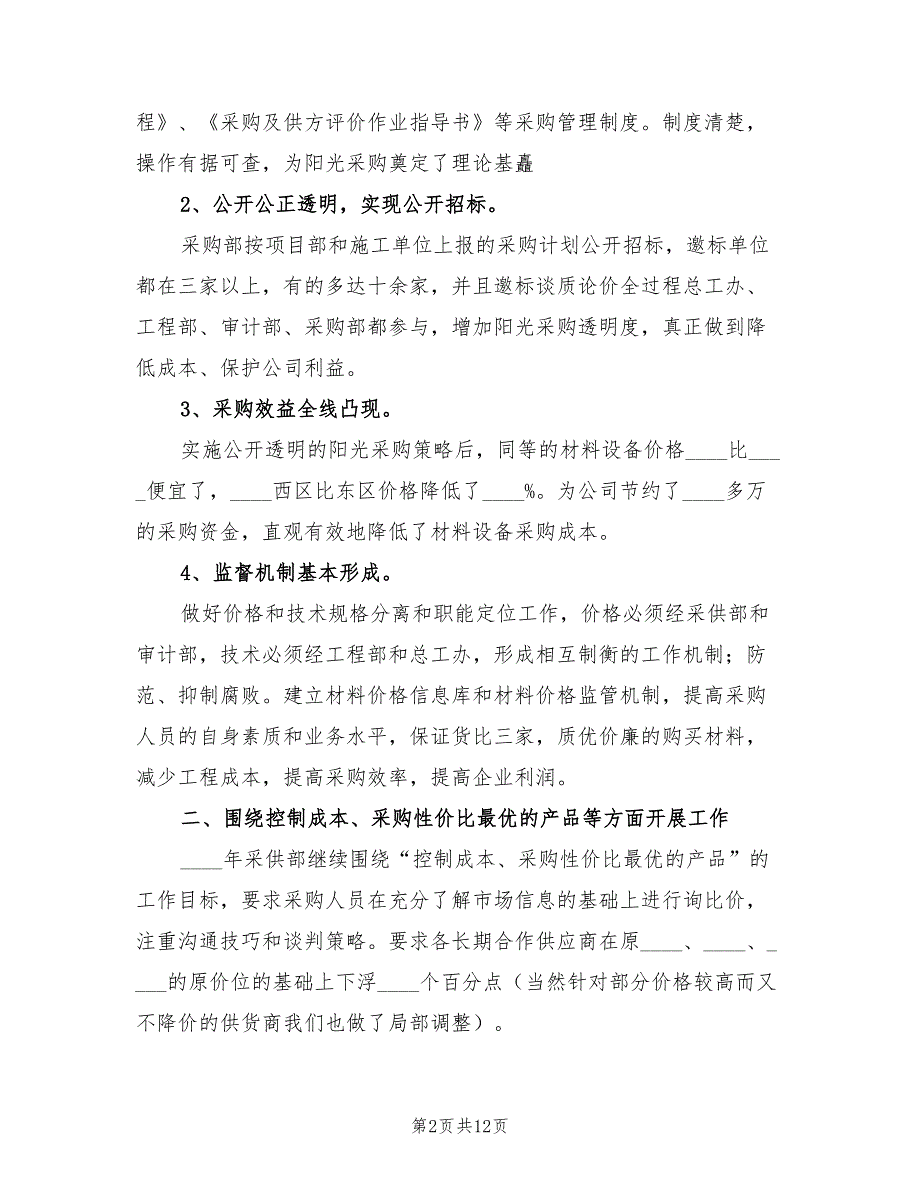 程》、《采购及供方评价作业指导书》等采购管理制度。制度清楚，
操作有据可查，为阳光采购奠定了理论基矗
2、公开公正透明，实现公开招标。
采购部按项目部和施工单位上报的采购计划公开招标，邀标单位
都在三家以上，有的多达十余家，并且邀标谈质论价全过程总工办、
工程部、审计部、采购部都参与，增加阳光采购透明度，真正做到降
低成本、保护公司利益。
3、采购效益全线凸现。
实施公开透明的阳光采购策略后，同等的材料设备价格____比___
_便宜了，____西区比东区价格降低了____%。为公司节约了____多万
的采购资金，直观有效地降低了材料设备采购成本。
4、监督机制基本形成。
做好价格和技术规格分离和职能定位工作，价格必须经采供部和
审计部，技术必须经工程部和总工办，形成相互制衡的工作机制；防
范、抑制腐败。建立材料价格信息库和材料价格监管机制，提高采购
人员的自身素质和业务水平，保证货比三家，质优价廉的购买材料，
减少工程成本，提高采购效率，提高企业利润。
二、围绕控制成本、采购性价比最优的产品等方面开展工作
____年采供部继续围绕“控制成本、采购性价比最优的产品”的
工作目标，要求采购人员在充分了解市场信息的基础上进行询比价，
注重沟通技巧和谈判策略。要求各长期合作供应商在原____、____、_
___的原价位的基础上下浮____个百分点（当然针对部分价格较高而又
不降价的供货商我们也做了局部调整）。
第2页共12页